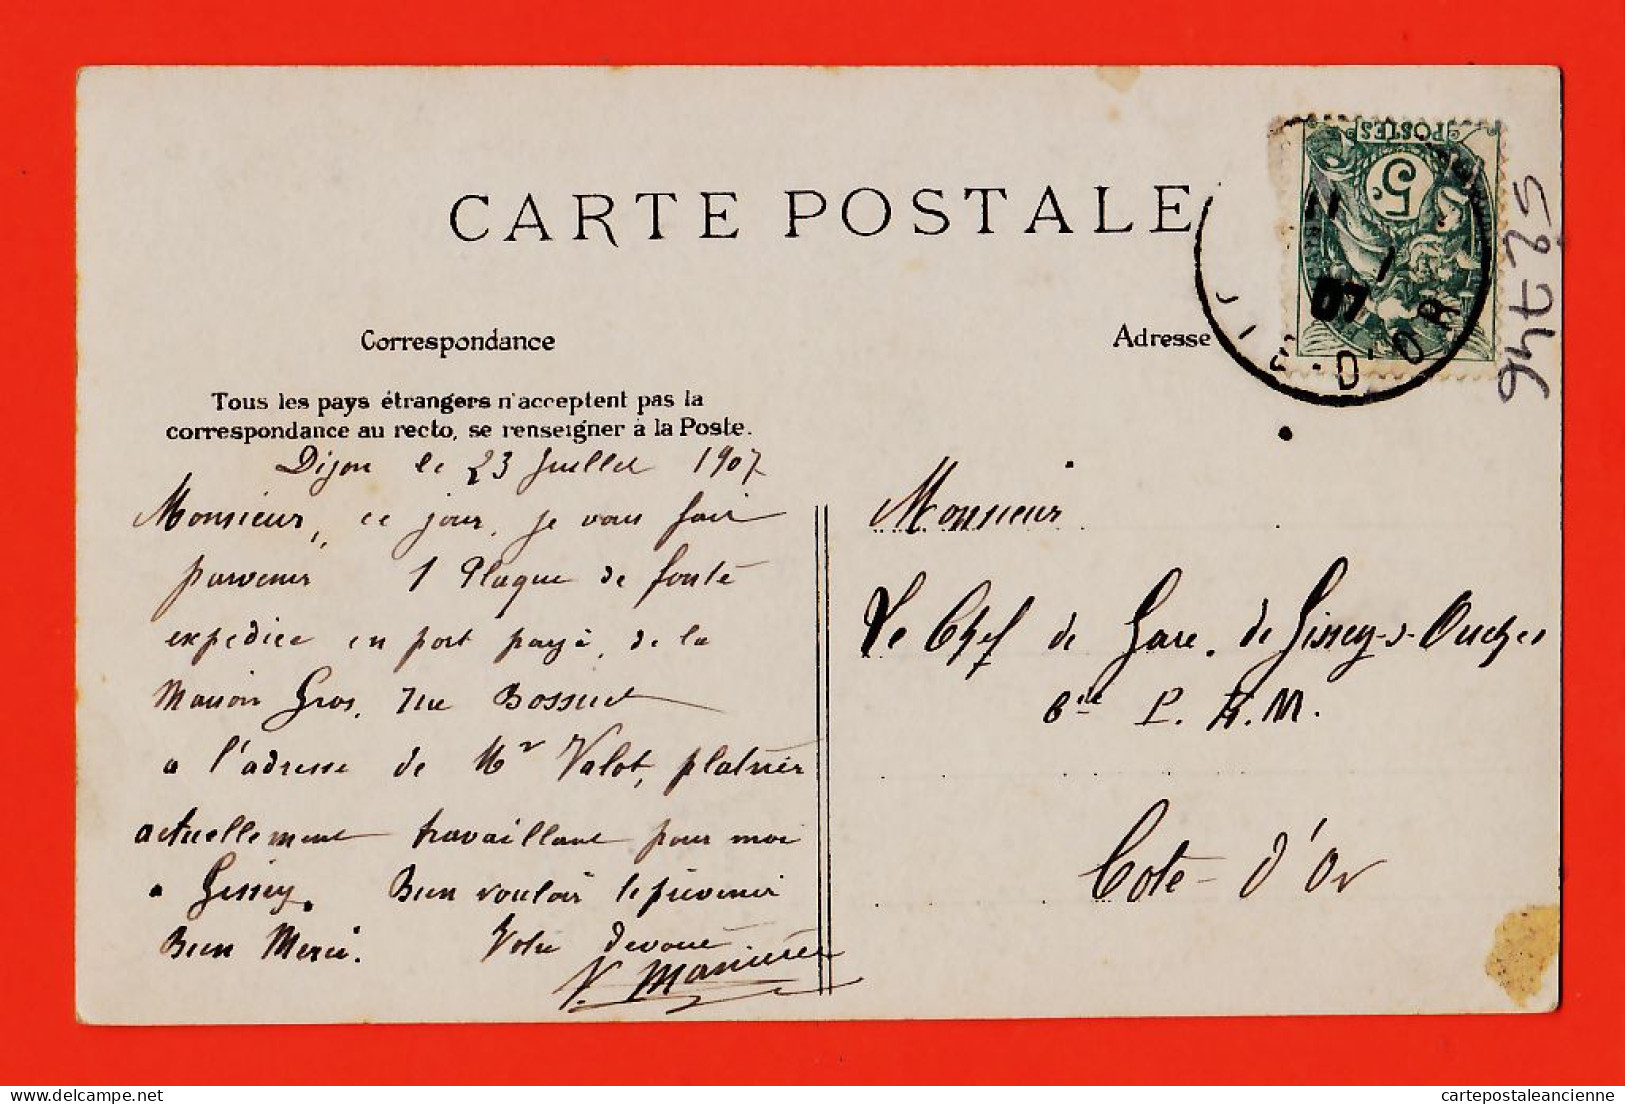 CARTE POSTALE
Correspondance
Tous les pays étrangers n'acceptent pas la
correspondance au recto, se renseigner à la Poste.
Dijon le 23 Juillet 1907
Monsieur, ce jour, je vous fais
parvenir 1 Plaque de fonte
expédiée en port payé, de la
Maison Gros, rue Bossuet
a l'adresse de Mr Valot, platrier
actuellement travaillant pour moi
a Gissey. Bien vouloir le prévenir
Bien Merci. Votre dévoué
V. Manière
Adresse
Monsieur
Le Chef de Gare de Gissey-s-Ouche
Cie P. L. M.
Cote-d'Or
POSTES
5c
11
07
D'OR
52 746
delcampe.net
cartepostaleancienne